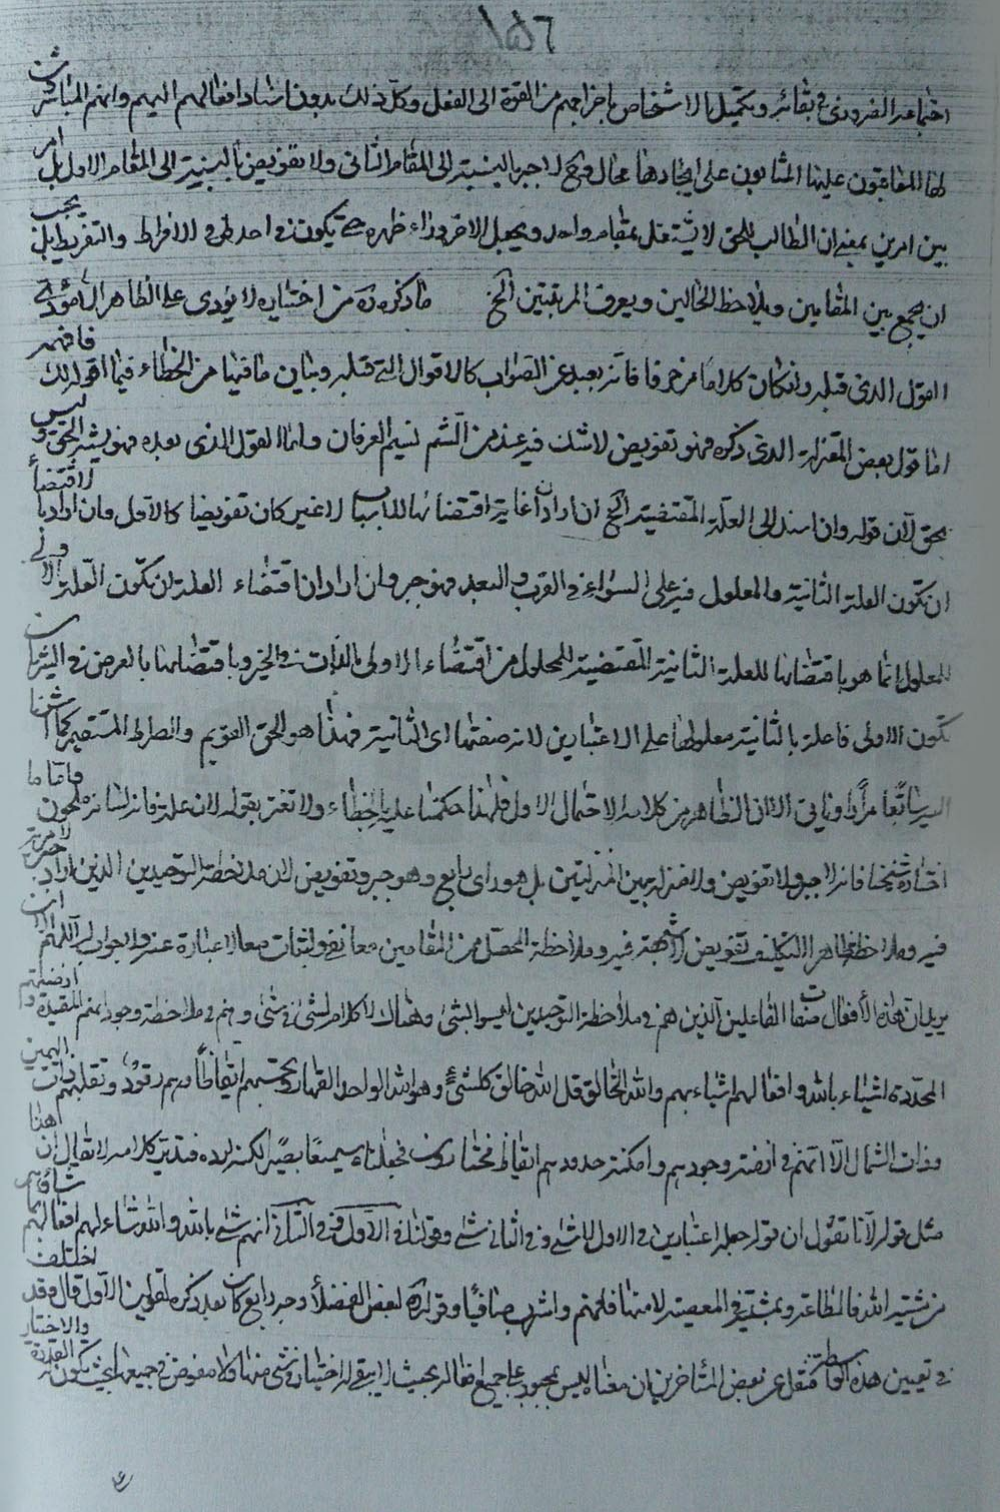 ١٥٦
الضروري في بقائه وتكميل الاشخاص باخراجهم من القوة الى الفعل وكل ذلك بدون اسناد افعالهم اليهم وانهم المباشرون
لها المعاقبون عليها المثابون على ايجادها محال وقبح لا جبر بالنسبة الى المقام الثاني ولا تفويض بالنسبة الى المقام الاول بل امر
بين امرين بمعنى ان الطالب للحق لا يشتغل بمقام واحد ويجعل الاخر وراء ظهره حتى يكون في احد طرفي الافراط والتفريط بل يجب
ان يجمع بين المقامين ويلاحظ الحالين ويعرف المرتبتين الخ ما ذكره من اختياره لا يؤدى على الظاهر الا مؤدى
القول الذي قبله وان كان كلاما مزخرفا فانه بعيد عن الصواب كالاقوال التي قبله وبيان ما فيها من الخطاء فيما اقول لك فافهم
اما قول بعض المعتزلة الذي ذكره فهو تفويض لا شك فيه عند من اشتم نسيم العرفان واما القول الذي بعده فهو يشبه الحق وليس
بحق لان قوله وان اسند الى العلة المقتضية الخ ان اراد ان غاية اقتضائها للاسباب لا غير كان تفويضا كالاول وان اراد بالاقتضاء
ان تكون العلة الثانية والمعلول فيه على السواء في القرب والبعد فهو جبر وان اراد ان اقتضاء العلة ان تكون العلة الاولى
للمعلول انما هو باقتضائها للعلة الثانية المقتضية للمعلول من اقتضاء الاولى بالذات في الخير وباقتضائها بالعرض في الشر بان
تكون الاولى فاعلة بالثانية معلولها على الاعتبارين لانه صفتها اى الثانية فهذا هو الحق القويم والصراط المستقيم كما اشرنا
اليه سابقا مرارا وياتي الا ان الظاهر من كلامه الاحتمال الاول فلهذا حكمنا عليه بالخطاء ولا تغتر بقوله لان علة فانه لسانه ملحون واما ما
اختاره شيخنا فانه لا جبر ولا تفويض ولا منزلة بين المنزلتين بل هو راى رابع وهو جبر وتفويض لان ملاحظة التوحيدين الذين اراد جبر لا مرية
فيه وملاحظة ظاهر التكليف تفويض لا شبهة فيه وملاحظة المحصل من المقامين معا نفي واثبات معا لا عبارة عنه ولا جواب له اللهم الا ان
يريد ان هذه الأفعال صفات الفاعلين الذين هم في ملاحظة التوحيدين ليسوا بشئ وهنالك لا كلام لشئ في شئ وهم في ملاحظة وجوداتهم المقيدة وارضيتهم
المحددة اشياء بالله وافعالهم اشياء بهم والله الخالق قل الله خالق كل شئ وهو الواحد القهار وتحسبهم ايقاظا وهم رقود ونقلبهم ذات اليمين
وذات الشمال الا انهم في ازمنة وجودهم وامكنة حدودهم ايقاظ مختارون فجعلناه سميعا بصيرا لكنه لم يرده فتدبر كلامه لا يقال ان هذا
مثل قوله لانا نقول ان قوله جعل اعتبارين في الاول لا شئ وفي الثاني شئ وقولنا في الاول وفي الثاني انهم شئ بالله والله شاء لهم افعالهم بما شاؤا
من مشيته الله فالطاعة وبمشيته في المعصية لا منها فافهم واشرب صافيا وقوله لبعض الفضلاء وجه رابع كان بعد ذكره لقولين الاول قال وقد اختلف
في تعيين هذه الواسطة فنقل عن بعض المتأخرين بان معناه ليس بمجبور على جميع افعاله بحيث لا يبقى له اختيار في شئ منها ولا مفوض في جميعها بحيث تكون له القدرة والاختيار